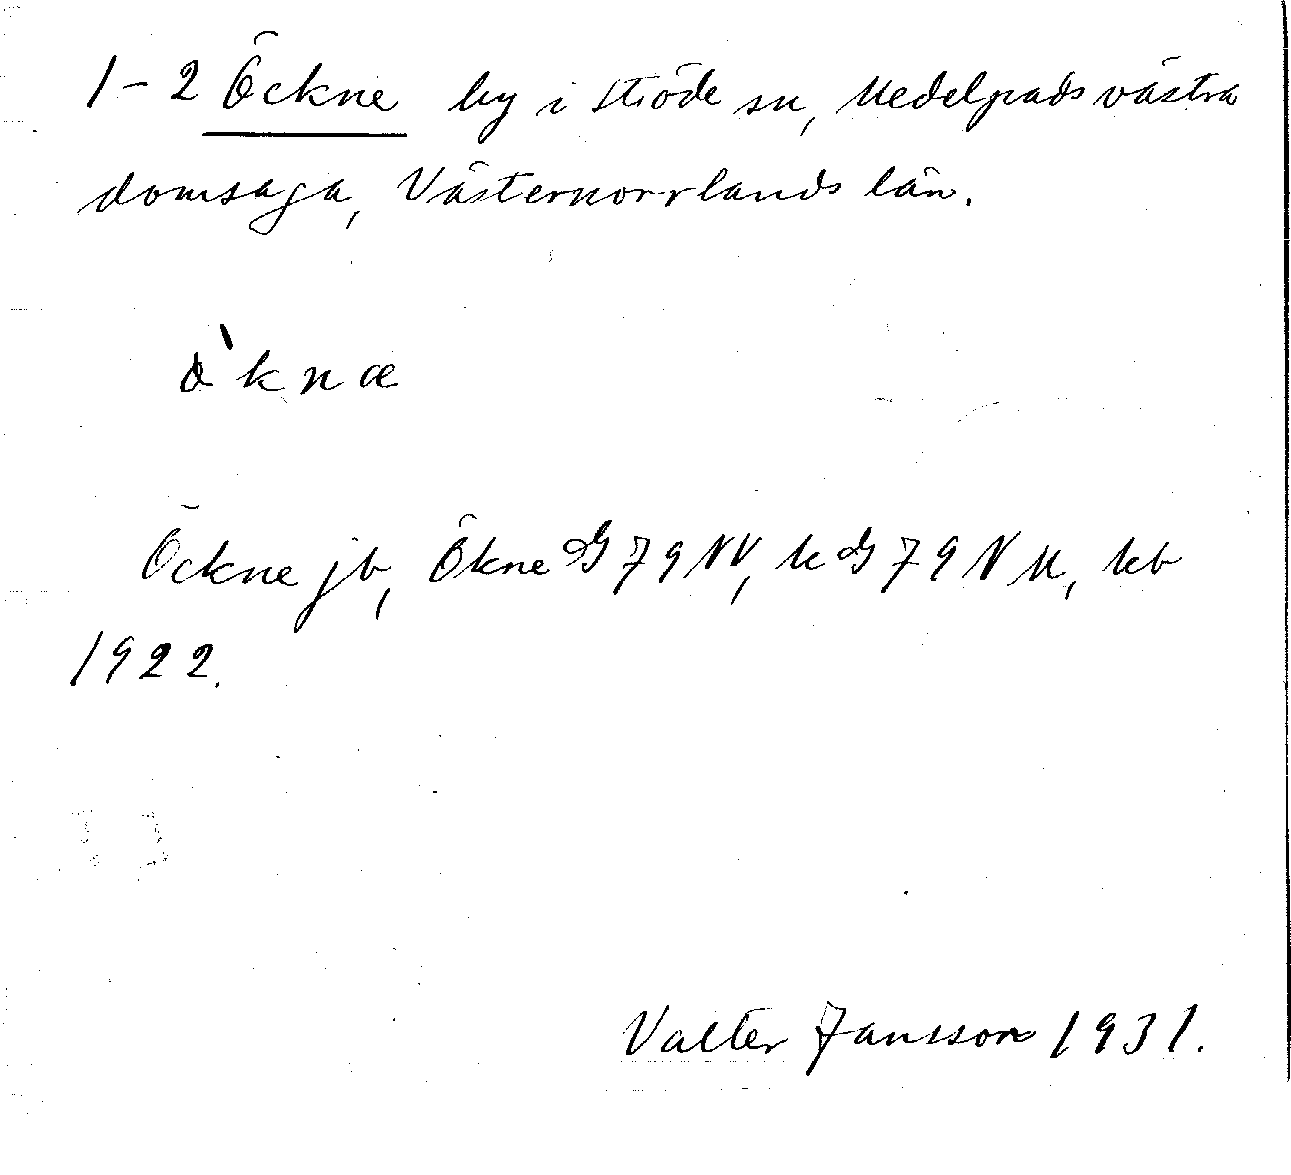 1-2 Öckne by i Stöde sn, Medelpads västra
domsaga, Västernorrlands län.
ö̀knæ
Öckne jb, Ökne GJ 79 NV, k GJ 79 NV, kb
1922.
Valter Jansson 1931.